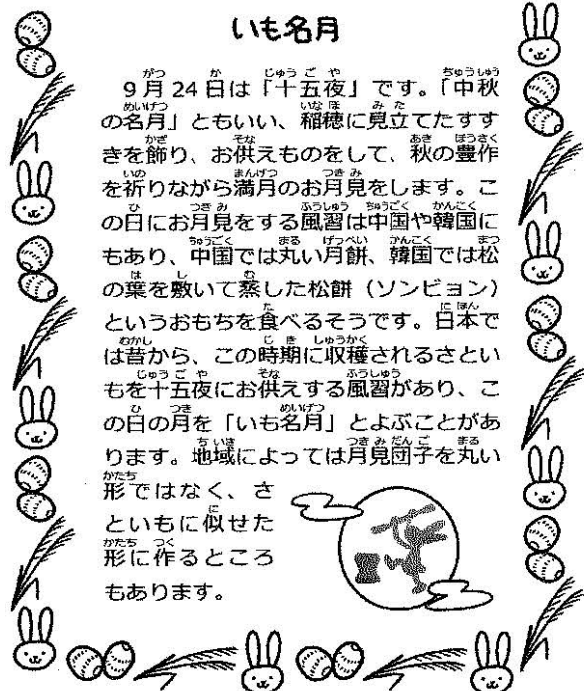 いも名月
9月24日は「十五夜」です。「中秋
の名月」ともいい、稲穂に見立てたすす
きを飾り、お供えものをして、秋の豊作
を祈りながら満月のお月見をします。こ
の日にお月見をする風習は中国や韓国に
もあり、中国では丸い月餅、韓国では松
の葉を敷いて蒸した松餅（ソンピョン）
というおもちを食べるそうです。日本で
は昔から、この時期に収穫されるさとい
もを十五夜にお供えする風習があり、こ
の日の月を「いも名月」とよぶことがあ
ります。地域によっては月見団子を丸い
形ではなく、さ
といもに似せた
形に作るところ
もあります。